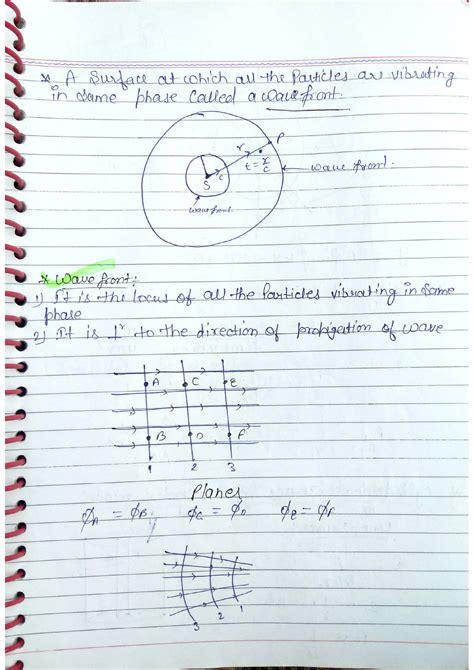 * A Surface at which all the Particles are vibrating
in same phase called a wavefront.
P
r
t = r/c
c
S
wave front.
wavefront
* Wavefront:
1) It is the locus of all the Particles vibrating in same
phase
2) It is ⊥r to the direction of propigation of wave
A C E
B D F
1 2 3
Planes
ϕA = ϕB ϕC = ϕD ϕE = ϕF
3 2 1